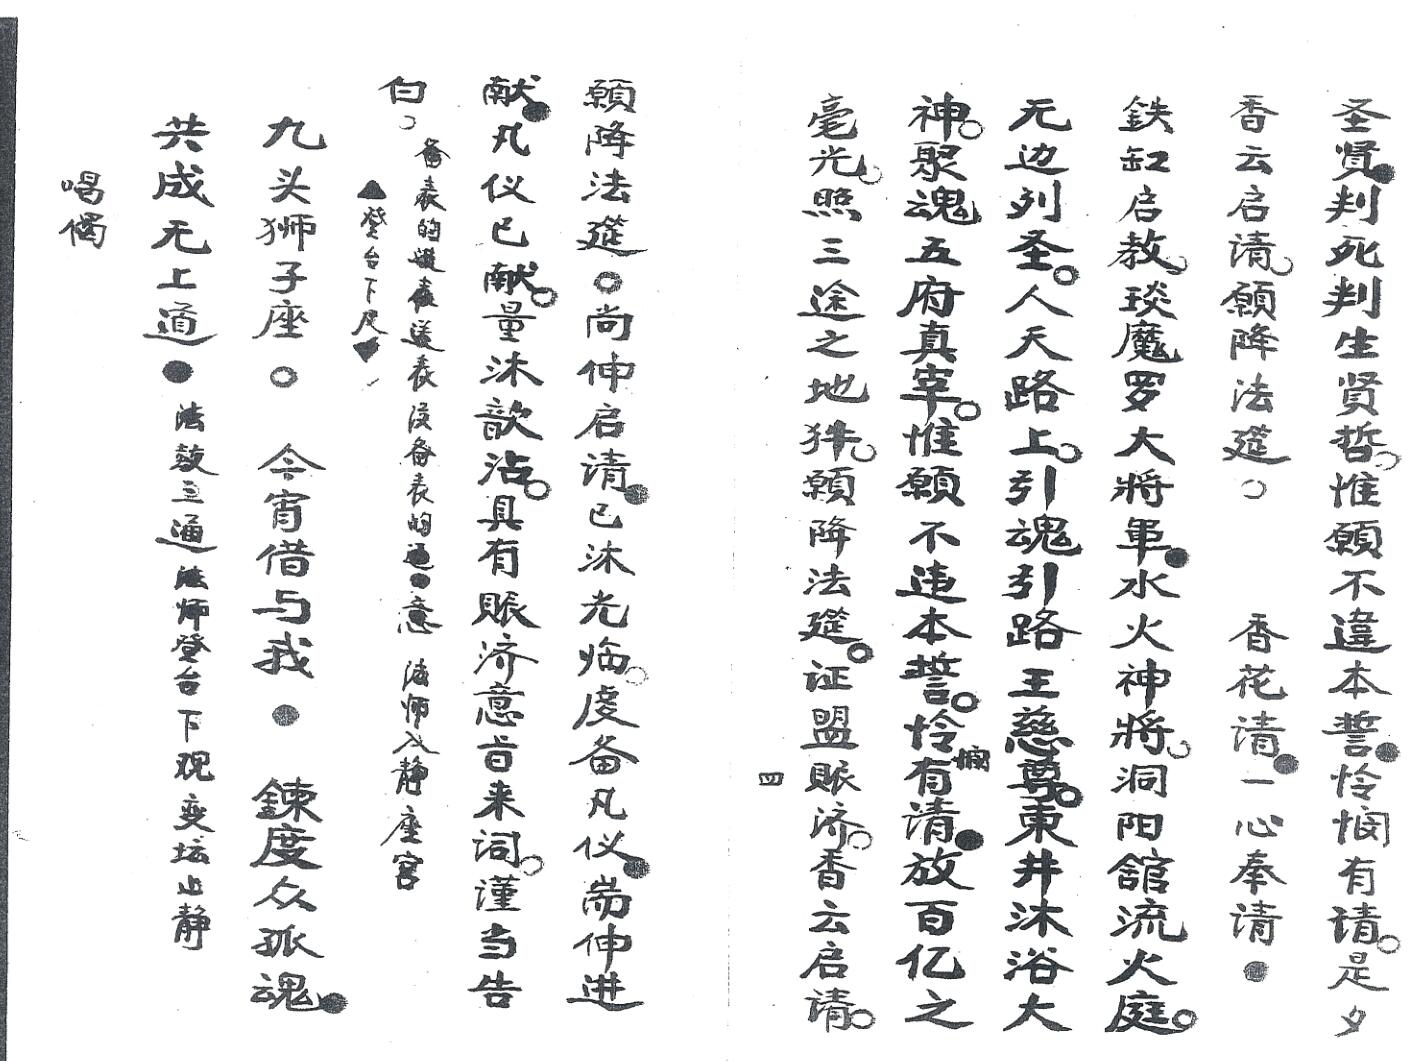 圣贤判死判生贤哲惟願不違本誓怜悯有请是夕
香云启请願降法筵 香花请一心奉请
鉄缸启教琰魔罗大将軍水火神将洞阳舘流火庭
无边列圣人天路上引魂引路王慈尊東井沐浴大
神聚魂五府真宰惟願不违本誓怜悯有请放百亿之
毫光照三途之地犴願降法筵证盟赈济香云启请
四
願降法筵尚伸启请已沐光临虔备凡仪耑伸进
献凡仪已献量沐歆沾具有赈济意旨来词谨当告
白 备表的送表没备表的通意 法师入静座宫
登台下
九头狮子座 今宵借与我 鍊度众孤魂
共成无上道 法鼓三通法师登台下观变坛止静
喝偈